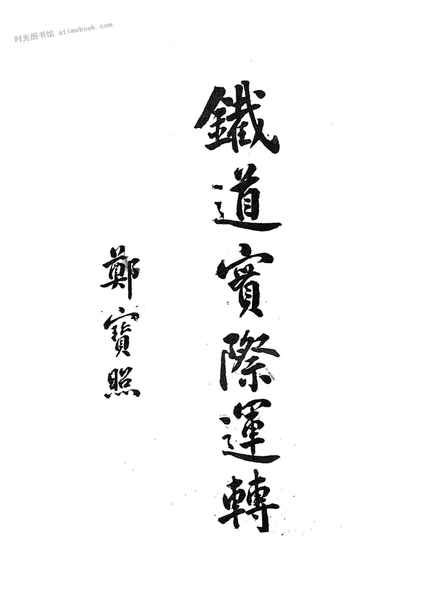 时光图书馆 atimebook.com
鐵道實際運轉
鄭寶照